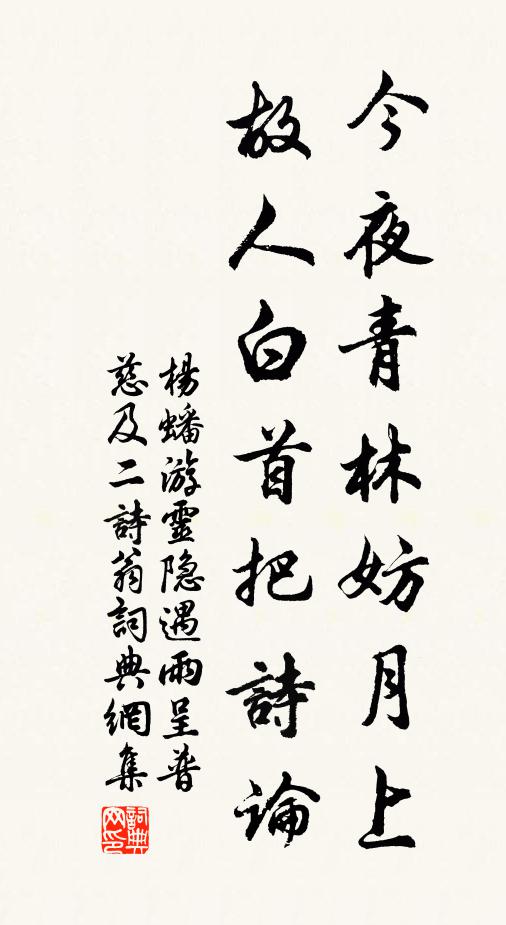 今夜青林妨月上
故人白首把詩論
楊蟠游靈隐遇雨呈普
慈及二詩翁詞典網集
詞典网印